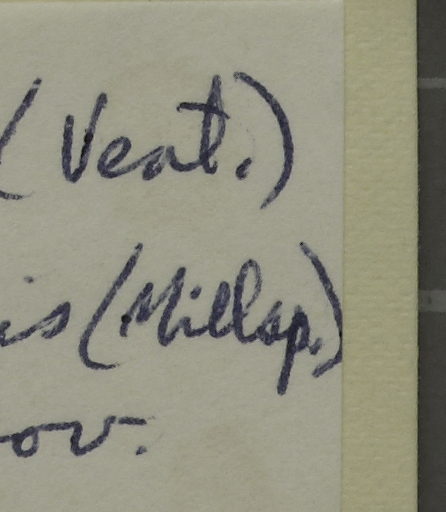 (Vent.)
is (Millsp.)
ov.